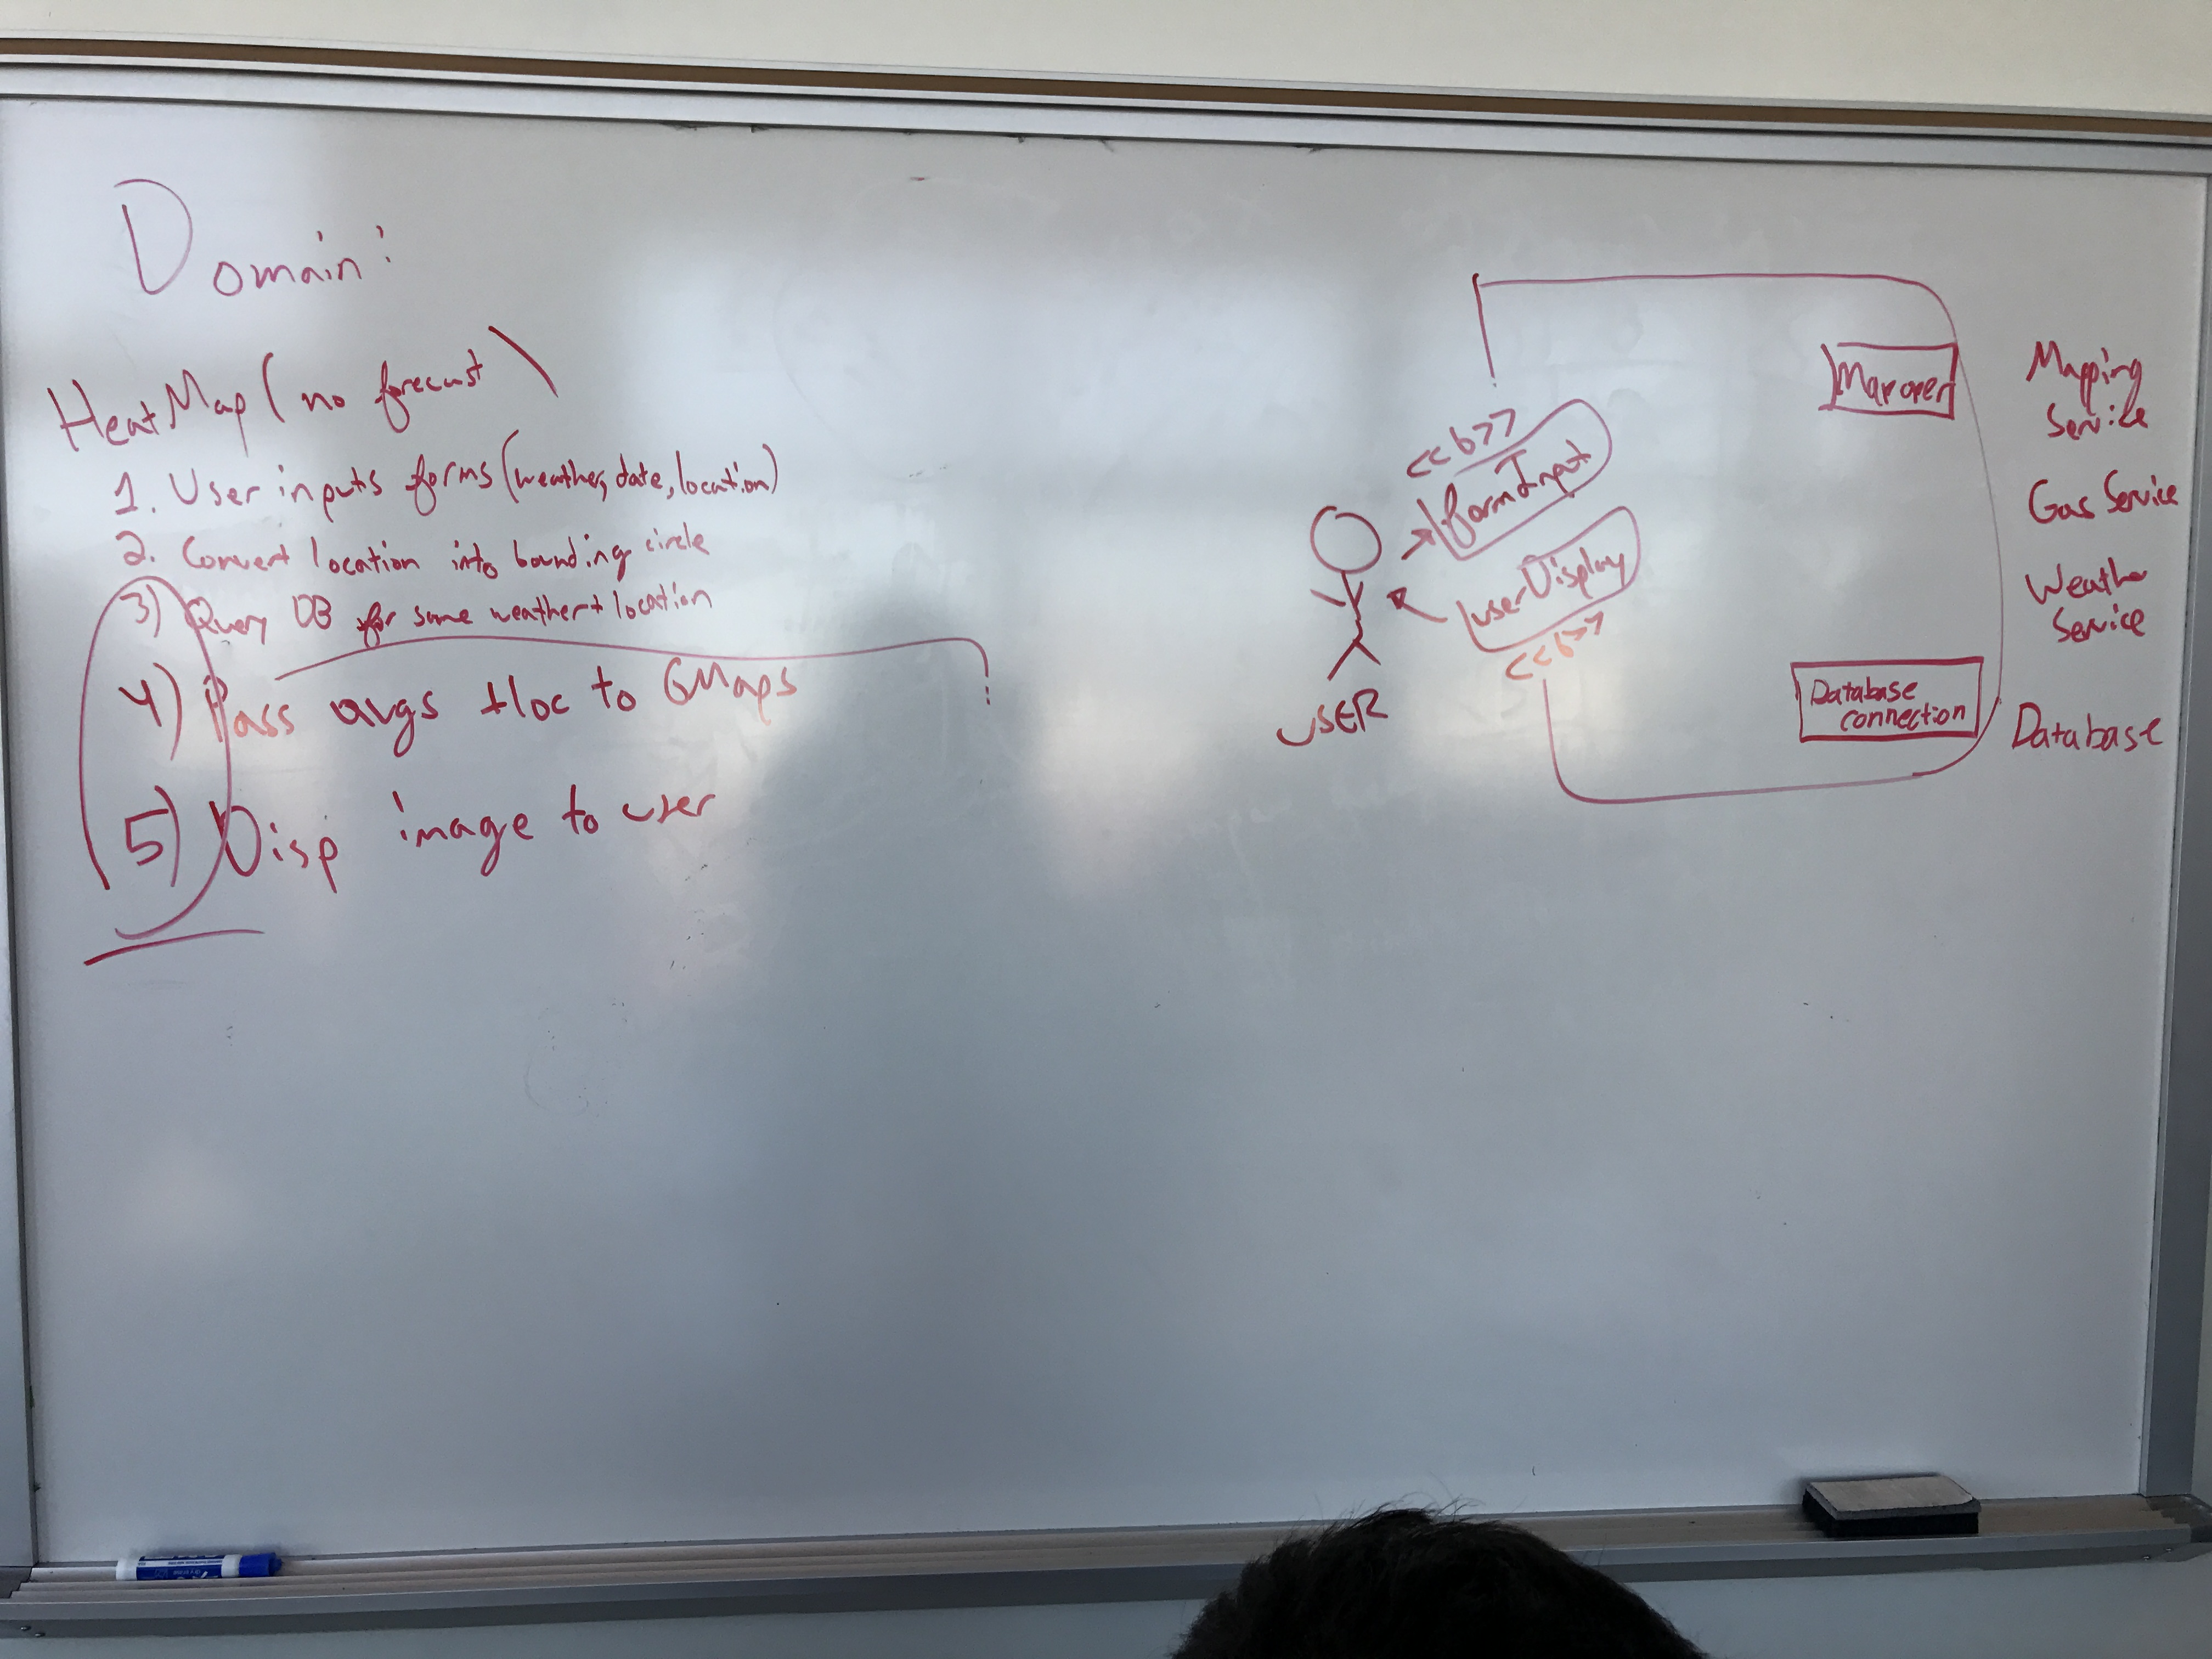 Domain:
HeatMap (no forecast)
1. User inputs forms (weather, date, location)
2. Convert location into bounding circle
3) Query DB for same weather + location
4) Pass avgs + loc to GMaps
5) Disp image to user
<<b>>
formInput
userDisplay
<<b>>
USER
Database
connection
Mapping
Service
Gas Service
Weather
Service
Database